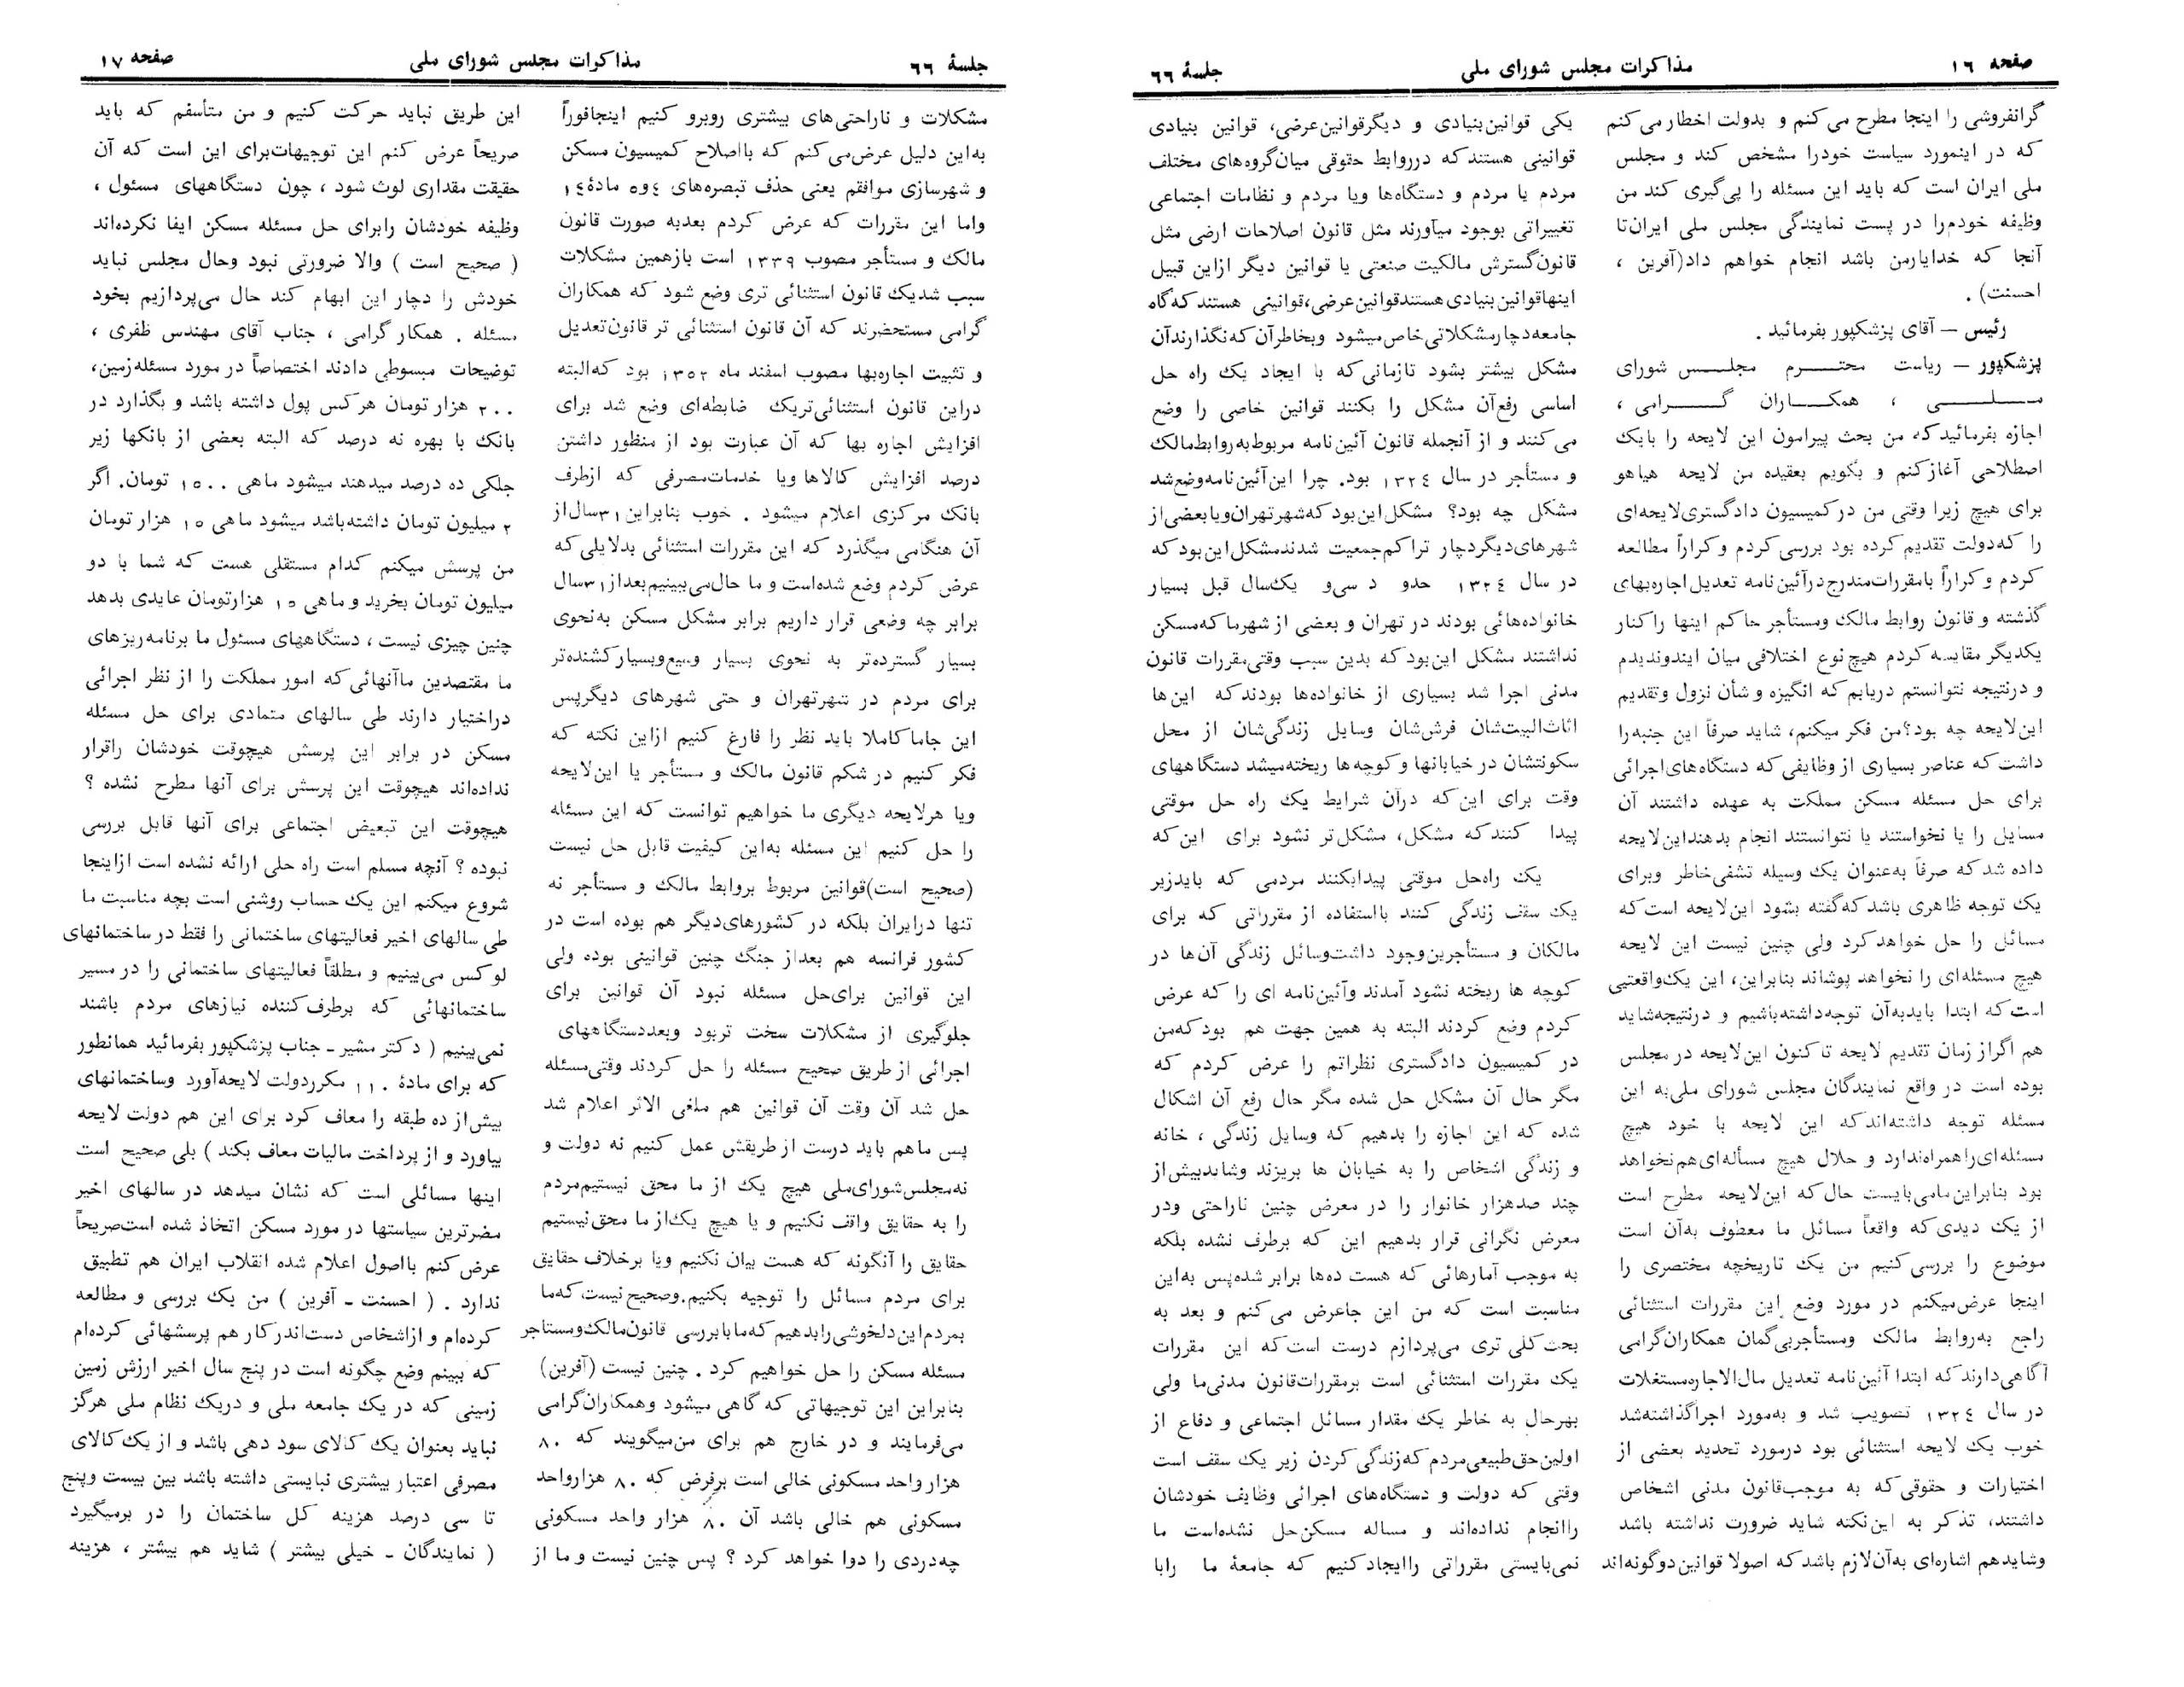 صفحه ۱۶
مذاکرات مجلس شورای ملی
جلسهٔ ۶۶
گرانفروشی را اینجا مطرح می‌کنم و بدولت اخطار می‌کنم
که در اینمورد سیاست خودرا مشخص کند و مجلس
ملی ایران است که باید این مسئله را پی‌گیری کند من
وظیفه خودم‌را در پست نمایندگی مجلس ملی ایران‌تا
آنجا که خدایارمن باشد انجام خواهم داد(آفرین ،
احسنت) .
رئیس – آقای پزشکپور بفرمائید .
پزشکپور – ریاست محتـــرم مجلـــس شورای
مـــلـــی ، همکـــاران گـــرامی ،
اجازه بفرمائیدکه من بحث پیرامون این لایحه را بایک
اصطلاحی آغازکنم و بگویم بعقیده من لایحه هیاهو
برای هیچ زیرا وقتی من در کمیسیون دادگستری‌لایحه‌ای
را که‌دولت تقدیم کرده بود بررسی‌کردم و کراراً مطالعه
کردم و کراراً با مقررات‌مندرج‌درآئین‌نامه تعدیل اجاره‌بهای
گذشته و قانون روابط مالک ومستأجر حاکم اینها راکنار
یکدیگر مقایسه کردم هیچ نوع اختلافی میان ایندوندیدم
و درنتیجه نتوانستم دریابم که انگیزه و شأن نزول وتقدیم
این‌لایحه چه بود؟من فکر میکنم، شاید صرفاً این جنبه را
داشت که عناصر بسیاری از وظایفی که دستگاه‌های‌اجرائی
برای حل مسئله مسکن مملکت به عهده داشتند آن
مسایل را یا نخواستند یا نتوانستند انجام بدهنداین‌لایحه
داده شد که صرفاً به‌عنوان یک وسیله تشفی‌خاطر وبرای
یک توجه ظاهری باشد که‌گفته بشود این‌لایحه است که
مسائل را حل خواهدکرد ولی چنین نیست این لایحه
هیچ مسئله‌ای را نخواهد پوشاند بنابراین، این یک‌واقعتیی
است که ابتدا بایدبه‌آن توجه‌داشته‌باشیم و درنتیجه‌شاید
هم اگراز زمان تقدیم لایحه تاکنون این‌لایحه در مجلس
بوده است در واقع نمایندگان مجلس شورای ملی‌به این
مسئله توجه داشته‌اندکه این لایحه با خود هیچ
مسئله‌ای‌راهمراه‌ندارد و حلال هیچ مسأله‌ای‌هم‌نخواهد
بود بنابراین‌مامی‌بایست حال‌که این‌لایحه مطرح است
از یک دیدی که واقعاً مسائل ما معطوف به‌آن است
موضوع را بررسی‌کنیم من یک تاریخچه مختصری را
اینجا عرض‌میکنم در مورد وضع این مقررات استثنائی
راجع به‌روابط مالک ومستأجربی‌گمان همکاران‌گرامی
آگاهی‌دارندکه ابتدا آئین‌نامه تعدیل مال‌الاجاره‌مستغلات
در سال ۱۳۲۴ تصویب شد و به‌مورد اجراگذاشته‌شد
خوب یک لایحه استثنائی بود درمورد تحدید بعضی از
اختیارات و حقوقی که به موجب‌قانون مدنی اشخاص
داشتند، تذکر به این‌نکته شاید ضرورت نداشته باشد
وشایدهم اشاره‌ای به‌آن‌لازم باشدکه اصولا قوانین‌دوگونه‌اند
یکی قوانین‌بنیادی و دیگرقوانین‌عرضی، قوانین بنیادی
قوانینی هستندکه درروابط حقوقی میان‌گروه‌های مختلف
مردم یا مردم و دستگاه‌ها ویا مردم و نظامات اجتماعی
تغییراتی بوجود میآورند مثل قانون اصلاحات ارضی مثل
قانون‌گسترش مالکیت صنعتی یا قوانین دیگر ازاین قبیل
اینهاقوانین بنیادی هستندقوانین‌عرضی،قوانینی هستندکه‌گاه
جامعه‌دچارمشکلاتی خاص‌میشود وبخاطرآن‌که‌نگذارندآن
مشکل بیشتر بشود تازمانی‌که با ایجاد یک راه حل
اساسی رفع‌آن مشکل را بکنند قوانین خاصی را وضع
می‌کنند و از آنجمله قانون آئین‌نامه مربوط‌به‌روابط‌مالک
و مستأجر در سال ۱۳۲۴ بود. چرا این‌آئین‌نامه‌وضع‌شد
مشکل چه بود؟ مشکل‌این‌بودکه‌شهرتهران‌ویابعضی‌از
شهرهای‌دیگردچار تراکم‌جمعیت شدندمشکل‌این‌بودکه
در سال ۱۳۲۴ حدو د سی‌و یک‌سال قبل بسیار
خانواده‌هائی بودند در تهران و بعضی از شهرماکه‌مسکن
نداشتند مشکل این‌بودکه بدین سبب وقتی‌مقررات قانون
مدنی اجرا شد بسیاری از خانواده‌ها بودندکه این‌ها
اثاث‌البیت‌شان فرش‌شان وسایل زندگی‌شان از محل
سکونتشان در خیابانها و کوچه‌ها ریخته‌میشد دستگاههای
وقت برای این‌که درآن شرایط یک راه حل موقتی
پیدا کنندکه مشکل، مشکل‌تر نشود برای این‌که
یک راه‌حل موقتی پیدابکنند مردمی که بایدزیر
یک سقف زندگی کنند بااستفاده از مقرراتی که برای
مالکان و مستأجرین‌وجود داشت‌وسائل زندگی آن‌ها در
کوچه ها ریخته نشود آمدند وآئین‌نامه ای را که عرض
کردم وضع کردند البته به همین جهت هم بودکه‌من
در کمیسیون دادگستری نظراتم را عرض کردم که
مگر حال آن مشکل حل شده مگر حال رفع آن اشکال
شده که این اجازه را بدهیم که وسایل زندگی ، خانه
و زندگی اشخاص را به خیابان ها بریزند وشایدبیش‌از
چند صدهزار خانوار را در معرض چنین ناراحتی ودر
معرض نگرانی قرار بدهیم این که برطرف نشده بلکه
به موجب آمارهائی که هست ده‌ها برابر شده‌پس به‌این
مناسبت است که من این جاعرض می‌کنم و بعد به
بحث‌کلی تری می‌پردازم درست است‌که این مقررات
یک مقررات استثنائی است برمقررات‌قانون مدنی‌ما ولی
بهرحال به خاطر یک مقدار مسائل اجتماعی و دفاع از
اولین‌حق‌طبیعی‌مردم که‌زندگی‌کردن زیر یک سقف است
وقتی که دولت و دستگاه‌های اجرائی وظایف خودشان
راانجام نداده‌اند و مساله مسکن‌حل نشده‌است ما
نمی‌بایستی مقرراتی راایجادکنیم که جامعهٔ ما رابا
جلسهٔ ۶۶
مذاکرات مجلس شورای ملی
صفحه ۱۷
مشکلات و ناراحتی‌های بیشتری روبرو کنیم اینجافوراً
به‌این دلیل عرض‌می‌کنم که بااصلاح کمیسیون مسکن
و شهرسازی موافقم یعنی حذف تبصره‌های ۴و۵ مادهٔ۱۴
واما این مقررات که عرض کردم بعدبه صورت قانون
مالک و مستأجر مصوب ۱۳۳۹ است بازهمین مشکلات
سبب شدیک قانون استثنائی تری وضع شود که همکاران
گرامی مستحضرند که آن قانون استثنائی تر قانون‌تعدیل
و تثبیت اجاره‌بها مصوب اسفند ماه ۱۳۵۲ بود که‌البته
دراین قانون استثنائی‌تریک ضابطه‌ای وضع شد برای
افزایش اجاره بها که آن عبارت بود از منظور داشتن
درصد افزایش کالاها ویا خدمات‌مصرفی که ازطرف
بانک مرکزی اعلام میشود . خوب بنابراین۳۱سال‌از
آن هنگامی میگذرد که این مقررات استثنائی بدلایلی که
عرض کردم وضع شده‌است و ما حال‌می‌بینیم‌بعداز۳۱سال
برابر چه وضعی قرار داریم برابر مشکل مسکن به‌نحوی
بسیار گسترده‌تر به نحوی بسیار وسیع‌وبسیارکشنده‌تر
برای مردم در شهرتهران و حتی شهرهای دیگرپس
این جاماکاملا باید نظر را فارغ کنیم ازاین نکته که
فکر کنیم در شکم قانون مالک و مستأجر یا این‌لایحه
ویا هرلایحه دیگری ما خواهیم توانست که این مسئله
را حل کنیم این مسئله به‌این کیفیت قابل حل نیست
(صحیح است)قوانین مربوط بروابط مالک و مستأجر نه
تنها درایران بلکه در کشورهای‌دیگر هم بوده است در
کشور فرانسه هم بعداز جنگ چنین قوانینی بوده ولی
این قوانین برای‌حل مسئله نبود آن قوانین برای
جلوگیری از مشکلات سخت تربود وبعددستگاههای
اجرائی از طریق صحیح مسئله را حل کردند وقتی‌مسئله
حل شد آن وقت آن قوانین هم ملغی الاثر اعلام شد
پس ماهم باید درست از طریقش عمل کنیم نه دولت و
نه‌مجلس‌شورای‌ملی هیچ یک از ما محق نیستیم‌مردم
را به حقایق واقف نکنیم و یا هیچ یک‌از ما محق‌نیستیم
حقایق را آنگونه که هست بیان نکنیم ویا برخلاف حقایق
برای مردم مسائل را توجیه بکنیم.وصحیح‌نیست که‌ما
بمردم‌این‌دلخوشی‌رابدهیم‌که‌مابابررسی قانون‌مالک‌ومستاجر
مسئله مسکن را حل خواهیم کرد . چنین نیست (آفرین)
بنابراین این توجیهاتی که گاهی میشود وهمکاران‌گرامی
می‌فرمایند و در خارج هم برای من‌میگویند که ۸۰
هزار واحد مسکونی خالی است برفرض که ۸۰ هزارواحد
مسکونی هم خالی باشد آن ۸۰ هزار واحد مسکونی
چه‌دردی را دوا خواهد کرد ؟ پس چنین نیست و ما از
این طریق نباید حرکت کنیم و من متأسفم که باید
صریحاً عرض کنم این توجیهات‌برای این است که آن
حقیقت مقداری لوث شود ، چون دستگاههای مسئول ،
وظیفه خودشان رابرای حل مسئله مسکن ایفا نکرده‌اند
( صحیح است ) والا ضرورتی نبود وحال مجلس نباید
خودش را دچار این ابهام کند حال می‌پردازیم بخود
مسئله . همکار گرامی ، جناب آقای مهندس ظفری ،
توضیحات مبسوطی دادند اختصاصاً در مورد مسئله‌زمین،
۲۰۰ هزار تومان هرکس پول داشته باشد و بگذارد در
بانک با بهره نه درصد که البته بعضی از بانکها زیر
جلکی ده درصد میدهند میشود ماهی ۱۵۰۰ تومان. اگر
۲ میلیون تومان داشته‌باشد میشود ماهی ۱۵ هزار تومان
من پرسش میکنم کدام مستقلی هست که شما با دو
میلیون تومان بخرید و ماهی ۱۵ هزارتومان عایدی بدهد
چنین چیزی نیست ، دستگاههای مسئول ما برنامه‌ریزهای
ما مقتصدین ماآنهائی که امور مملکت را از نظر اجرائی
دراختیار دارند طی سالهای متمادی برای حل مسئله
مسکن در برابر این پرسش هیچوقت خودشان راقرار
نداده‌اند هیچوقت این پرسش برای آنها مطرح نشده ؟
هیچوقت این تبعیض اجتماعی برای آنها قابل بررسی
نبوده ؟ آنچه مسلم است راه حلی ارائه نشده است ازاینجا
شروع میکنم این یک حساب روشنی است بچه مناسبت ما
طی سالهای اخیر فعالیتهای ساختمانی را فقط در ساختمانهای
لوکس می‌بینیم و مطلقاً فعالیتهای ساختمانی را در مسیر
ساختمانهائی که برطرف‌کننده نیازهای مردم باشند
نمی‌بینیم ( دکتر مشیر ـ جناب پزشکپور بفرمائید همانطور
که برای مادهٔ ۱۱۰ مکرردولت لایحه‌آورد وساختمانهای
بیش‌از ده طبقه را معاف کرد برای این هم دولت لایحه
بیاورد و از پرداخت مالیات معاف بکند ) بلی صحیح است
اینها مسائلی است که نشان میدهد در سالهای اخیر
مضرترین سیاستها در مورد مسکن اتخاذ شده است‌صریحاً
عرض کنم بااصول اعلام شده انقلاب ایران هم تطبیق
ندارد . ( احسنت ـ آفرین ) من یک بررسی و مطالعه
کرده‌ام و ازاشخاص دست‌اندرکار هم پرسشهائی کرده‌ام
که ببینم وضع چگونه است در پنج سال اخیر ارزش زمین
زمینی که در یک جامعه ملی و دریک نظام ملی هرگز
نباید بعنوان یک کالای سود دهی باشد و از یک کالای
مصرفی اعتبار بیشتری نبایستی داشته باشد بین بیست وپنج
تا سی درصد هزینه کل ساختمان را در برمیگیرد
( نمایندگان ـ خیلی بیشتر ) شاید هم بیشتر ، هزینه